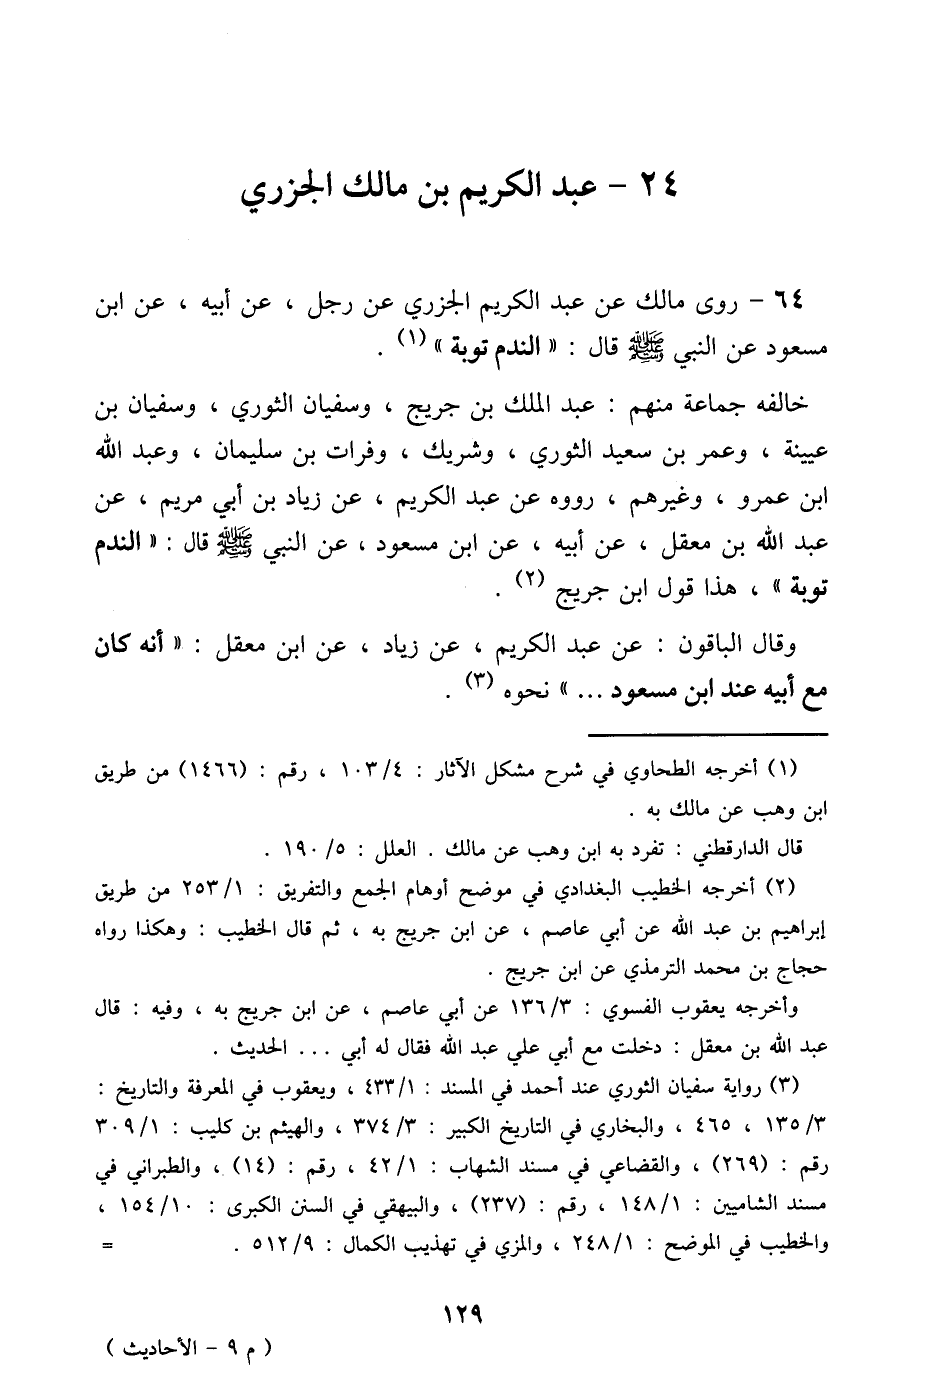 ٢٤ - عبد الكريم بن مالك الجزري
٦٤ - روى مالك عن عبد الكريم الجزري عن رجل ، عن أبيه ، عن ابن
مسعود عن النبي ﷺ قال : « الندم توبة » (١) .
خالفه جماعة منهم : عبد الملك بن جريج ، وسفيان الثوري ، وسفيان بن
عيينة ، وعمر بن سعيد الثوري ، وشريك ، وفرات بن سليمان ، وعبد الله
ابن عمرو ، وغيرهم ، رووه عن عبد الكريم ، عن زياد بن أبي مريم ، عن
عبد الله بن معقل ، عن أبيه ، عن ابن مسعود ، عن النبي ﷺ قال : « الندم
توبة » ، هذا قول ابن جريج (٢) .
وقال الباقون : عن عبد الكريم ، عن زياد ، عن ابن معقل : « أنه كان
مع أبيه عند ابن مسعود ... » نحوه (٣) .
(١) أخرجه الطحاوي في شرح مشكل الآثار : ١٠٣/٤ ، رقم : (١٤٦٦) من طريق
ابن وهب عن مالك به .
قال الدارقطني : تفرد به ابن وهب عن مالك . العلل : ١٩٠/٥ .
(٢) أخرجه الخطيب البغدادي في موضح أوهام الجمع والتفريق : ٢٥٣/١ من طريق
إبراهيم بن عبد الله عن أبي عاصم ، عن ابن جريج به ، ثم قال الخطيب : وهكذا رواه
حجاج بن محمد الترمذي عن ابن جريج .
وأخرجه يعقوب الفسوي : ١٣٦/٣ عن أبي عاصم ، عن ابن جريج به ، وفيه : قال
عبد الله بن معقل : دخلت مع أبي علي عبد الله فقال له أبي ... الحديث .
(٣) رواية سفيان الثوري عند أحمد في المسند : ٤٣٣/١ ، ويعقوب في المعرفة والتاريخ :
١٣٥/٣ ، ٤٦٥ ، والبخاري في التاريخ الكبير : ٣٧٤/٣ ، والهيثم بن كليب : ٣٠٩/١
رقم : (٢٦٩) ، والقضاعي في مسند الشهاب : ٤٢/١ ، رقم : (١٤) ، والطبراني في
مسند الشاميين : ١٤٨/١ ، رقم : (٢٣٧) ، والبيهقي في السنن الكبرى : ١٥٤/١٠ ،
والخطيب في الموضح : ٢٤٨/١ ، والمزي في تهذيب الكمال : ٥١٢/٩ . =
١٢٩
( م ٩ - الأحاديث )